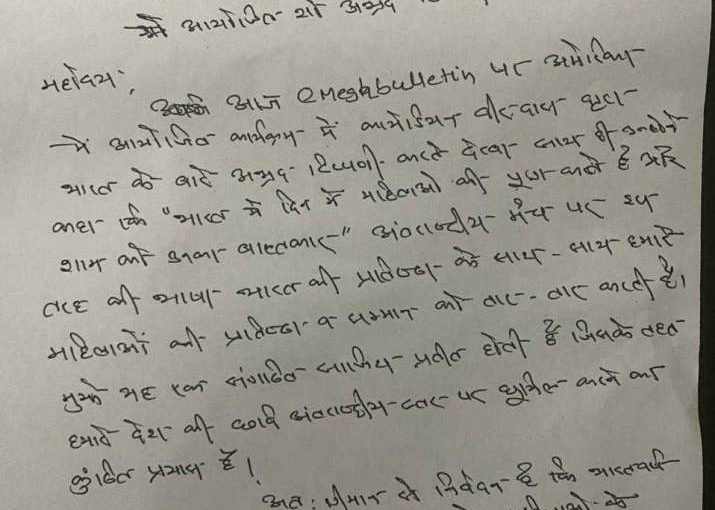 में आयोजित शो अभद्र
महोदय,
आज @Meghbulletin पर अमेरिका
में आयोजित कार्यक्रम में कामेडियन वीर दास द्वारा
भारत के बारे अभद्र टिप्पणी करते देखा साथ ही उन्होंने
कहा कि "भारत में दिन में महिलाओं की पूजा करते है और
शाम को उनका बालत्कार" अंतराष्ट्रीय मंच पर इस
तरह की भाषा भारत की प्रतिष्ठा के साथ-साथ हमारे
महिलाओं की प्रतिष्ठा व सम्मान को तार-तार करती है।
मुझे यह एक संगठित साजिश प्रतीत होती है जिसके तहत
हमारे देश की छवि अंतराष्ट्रीय स्तर पर धुमिल करने का
कुंठित प्रयास है।
अतः श्रीमान से निवेदन है कि भारतवर्ष